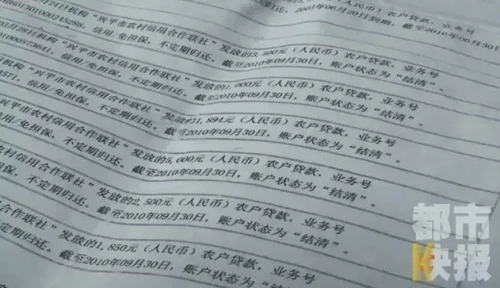 月24日机构"兴平市农村信用合作联社"发放的3,500元(人民币)农户贷款,业务号
信用/免担保,不定期归还。
截至2010年06月30日
月28日机构"兴平市农村信用合作联社"发放的1,000元(人民币)农户贷款,业务号
信用/免担保,不定期归还。截至2010年09月30日,账户状态为"结清"。
兴平市农村信用合作联社"发放的1,891元(人民币)农户贷款,业务号
信用/免担保,不定期归还。截至2010年09月30日,账户状态为"结清"。
市农村信用合作联社"发放的5,000元(人民币)农户贷款,业务号
免担保,不定期归还。截至2010年09月30日,账户状态为"结清"。
村信用合作联社"发放的2,500元(人民币)农户贷款,业务号
不定期归还。截至2010年09月30日,账户状态为"结清"。
合作联社"发放的1,850元(人民币)农户贷款,业务号
归还。截至2010年09月30日,账户状态为"结清"。
都市
快报